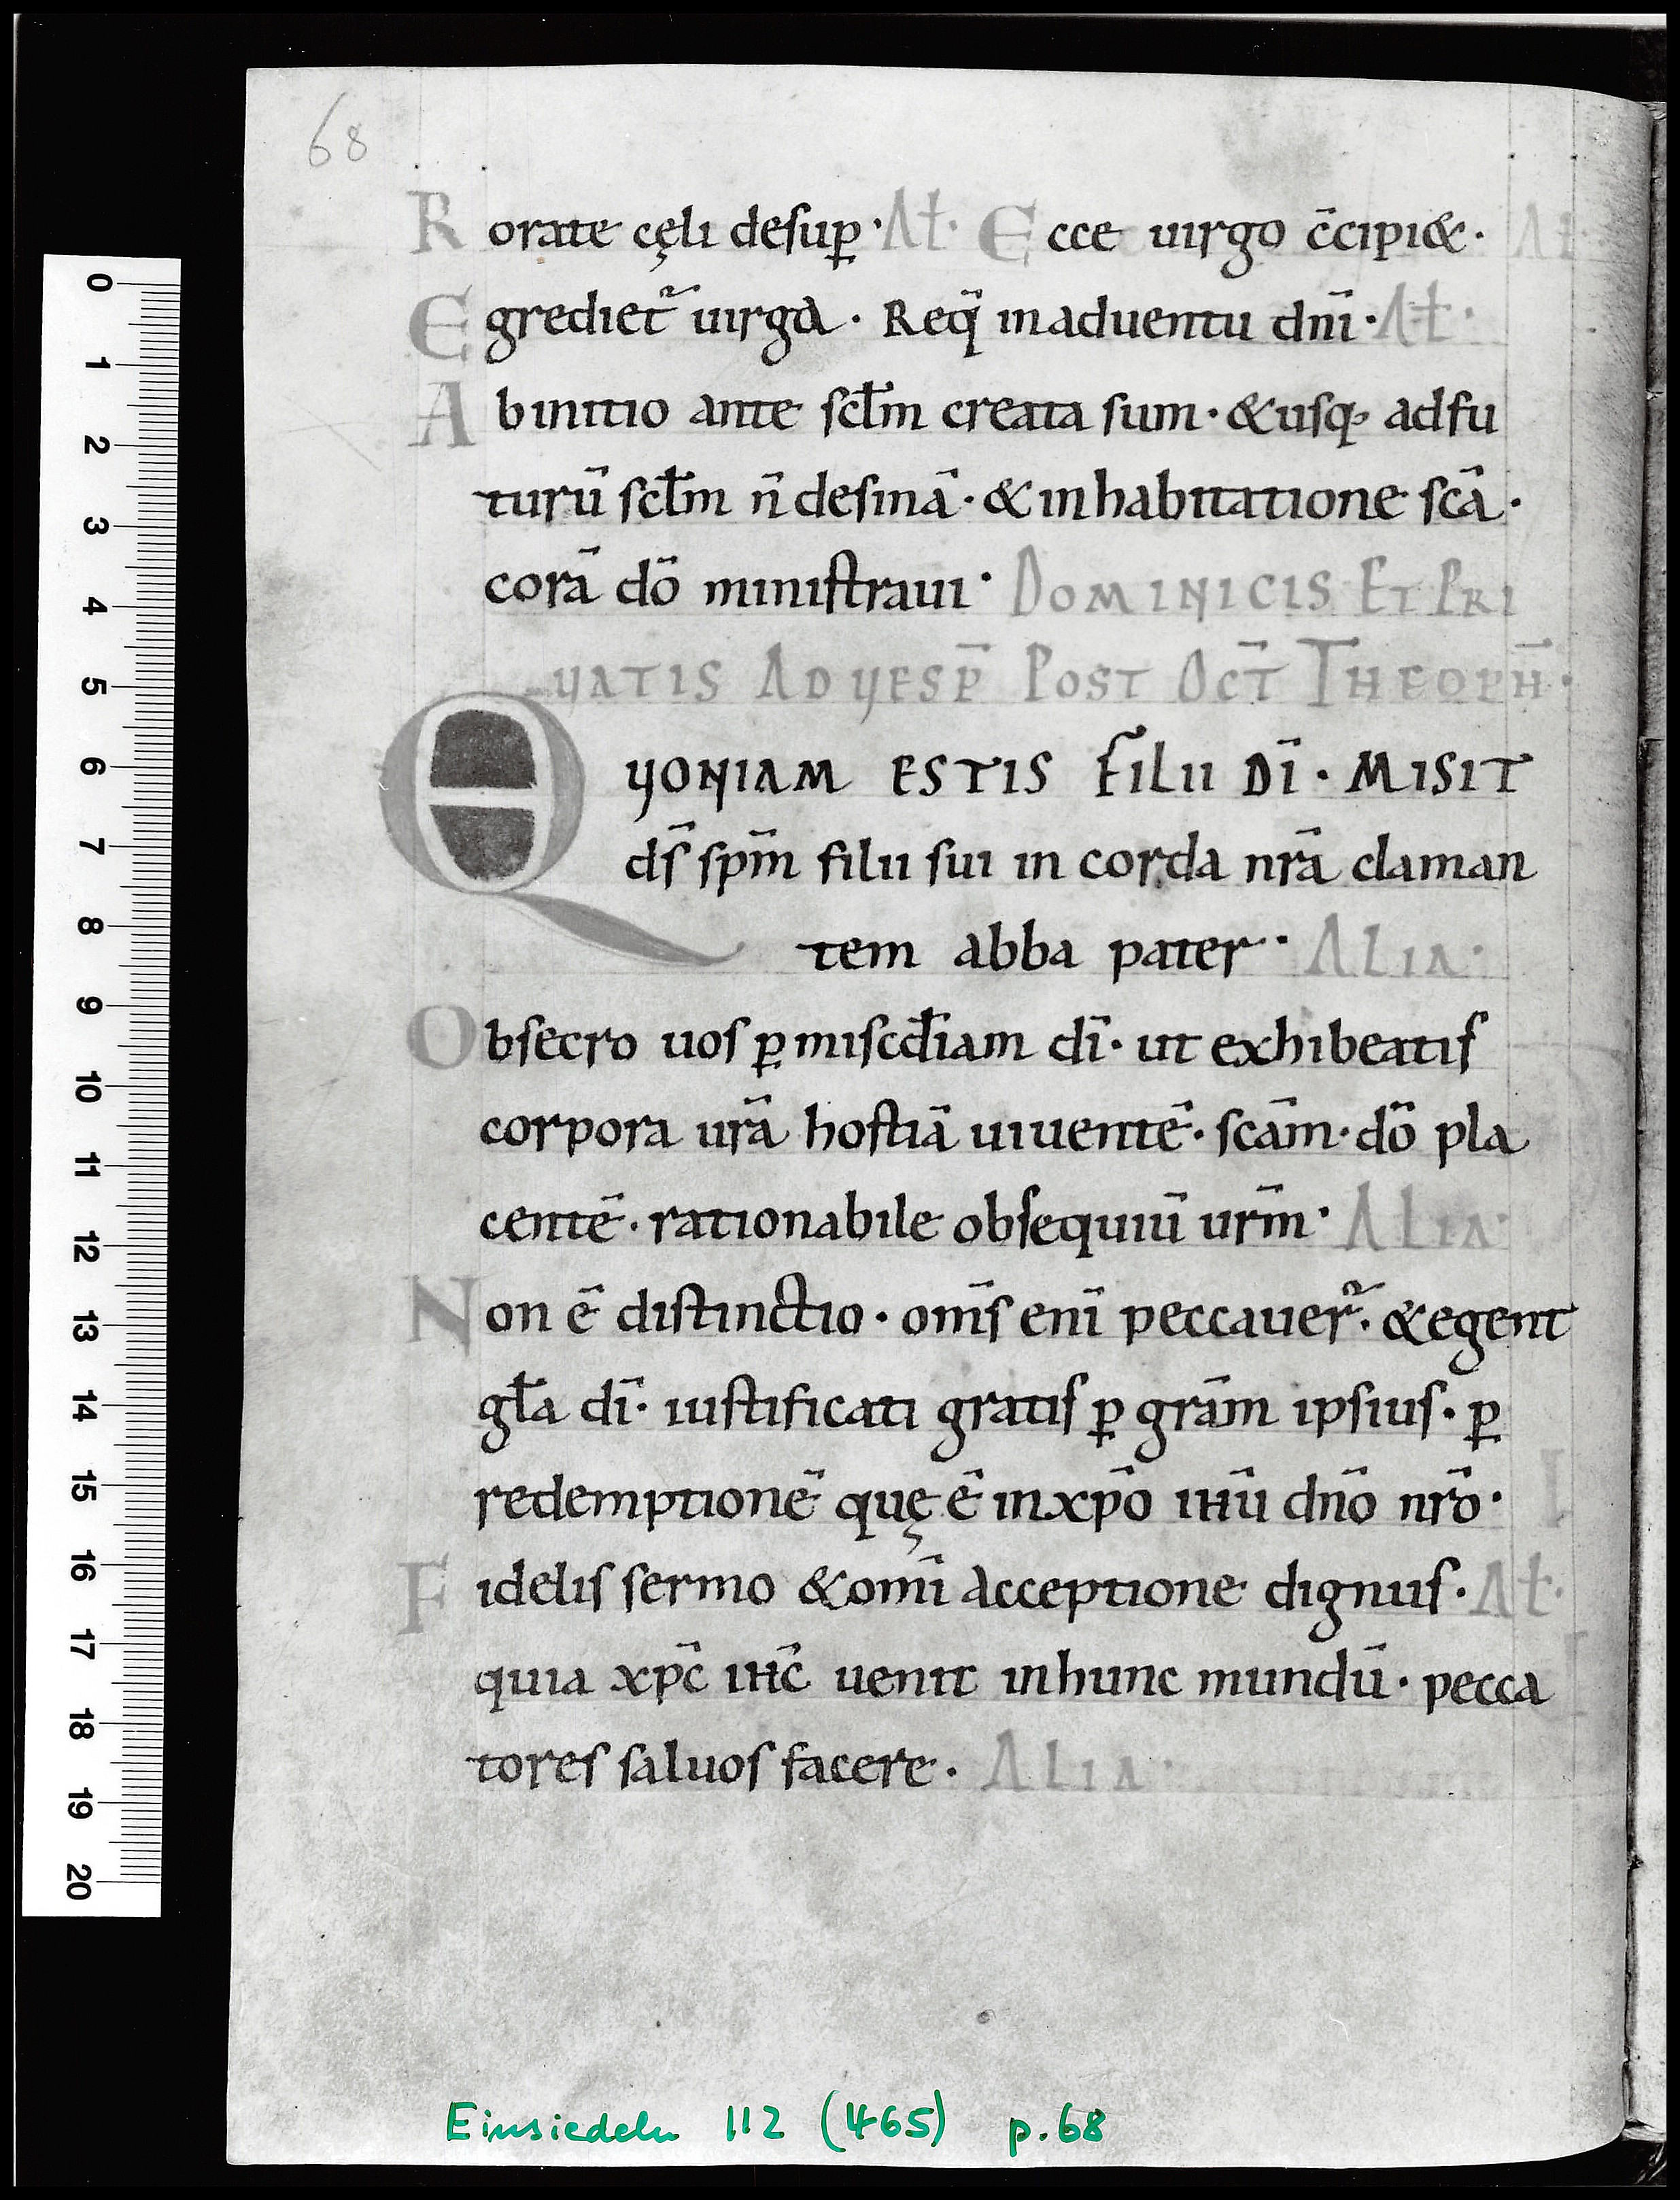 68
Rorate cęli desup̱· Aƚ· Ecce uirgo c̄cipi&· Aƚ·
Egrediet᷑ uirga· Req̄ inaduentu dn̄i· Aƚ·
Abinitio ante scƚm creata sum· &usq; adfu
turū scƚm n̄ desinā· &inhabitatione scā·
corā dō ministraui· DOMINICIS ET PRI
VATIS AD VESP̄ POST OCT̄ THEOPH̄·
QUONIAM ESTIS FILII DĪ· MISIT
ds̄ spm̄ filii sui in corda nrā claman
tem abba pater· ALIA·
Obsecro uos ꝑ miscđiam dī· ut exhibeatis
corpora urā hostiā uiuentē· scām· dō pla
centē· rationabile obsequiū urm̄· ALIA·
Non ē distinctio· om̄s enī peccauer᷑· &egent
gƚa dī· iustificati gratis ꝑ grām ipsius· ꝑ
redemptionē quę ē inxp̄o ihū dn̄o nr̄o·
Fidelis sermo &om̄i acceptione dignus· Aƚ·
quia xp̄c ihc̄ uenit inhunc mundū· pecca
tores saluos facere· ALIA·
Einsiedeln 112 (465) p. 68
0
1
2
3
4
5
6
7
8
9
10
11
12
13
14
15
16
17
18
19
20